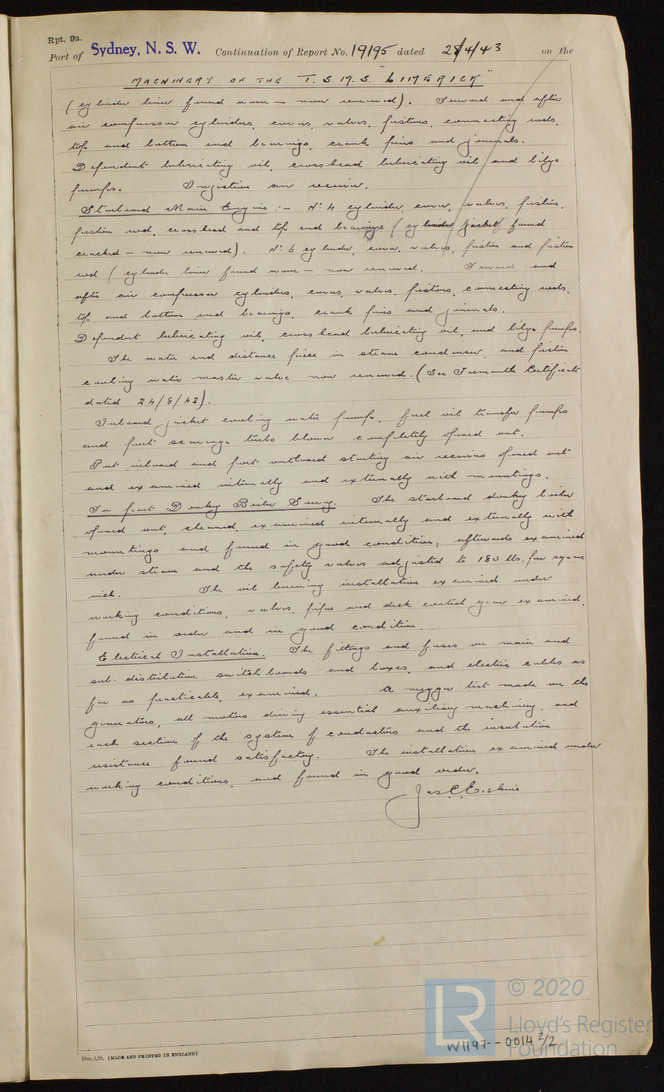 Rpt. 9a.
Port of Sydney, N. S. W. Continuation of Report No. 19195 dated 28/4/43 on the
MACHINERY OF THE T.S.M.S "LIMERICK"
(cylinder liner found worn – now renewed). Forward and after
air compressor cylinders, covers, valves, pistons, connecting rods,
top and bottom end bearings, crank pins and journals.
Dependent lubricating oil, crosshead lubricating oil and bilge
pumps. Injection air receiver.
Starboard Main Engine :- No 4 cylinder, cover, valves, piston,
piston rod, crosshead and top end bearings (cylinder jacket found
cracked – now renewed). No 6 cylinder, cover, valves, piston and piston
rod (cylinder liner found worn – now renewed. Forward and
after air compressor cylinders, covers, valves, pistons, connecting rods,
top and bottom end bearings, crank pins and journals.
Dependent lubricating oil, crosshead lubricating oil, and bilge pumps.
The water end distance piece in steam condenser, and piston
cooling water master valve now renewed. (See Fremantle Certificate
dated 24/8/42).
Inboard jacket cooling water pump, fuel oil transfer pumps
and port scavenge turbo blower completely opened out.
Port inboard and port outboard starting air receivers opened out
and examined internally and externally with mountings.
In part Donkey Boiler Survey. The starboard donkey boiler
opened out, cleaned, examined internally and externally with
mountings and found in good condition; afterwards examined
under steam and the safety valves adjusted to 180 lbs. per square
inch. The oil burning installation examined under
working conditions, valves, pipes and deck control gear examined,
found in order and in good condition.
Electrical Installation. The fittings and fuses on main and
sub. distribution switch boards and boxes, and electric cables as
far as practicable, examined. A megger test made on the
generators, all motors driving essential auxiliary machinery, and
each section of the system of conductors and the insulation
resistance found satisfactory. The installation examined under
working conditions, and found in good order.
Jas C. Erskine
10m.4,39. (MADE AND PRINTED IN ENGLAND)
LR
© 2020
Lloyd's Register
Foundation
W1197-0014 2/2